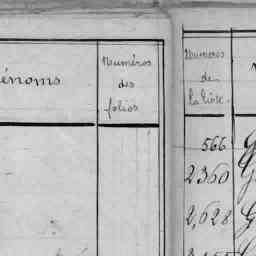 énoms
Numéros
des
folios
Numéros
de
la liste.
566
2360
2,628